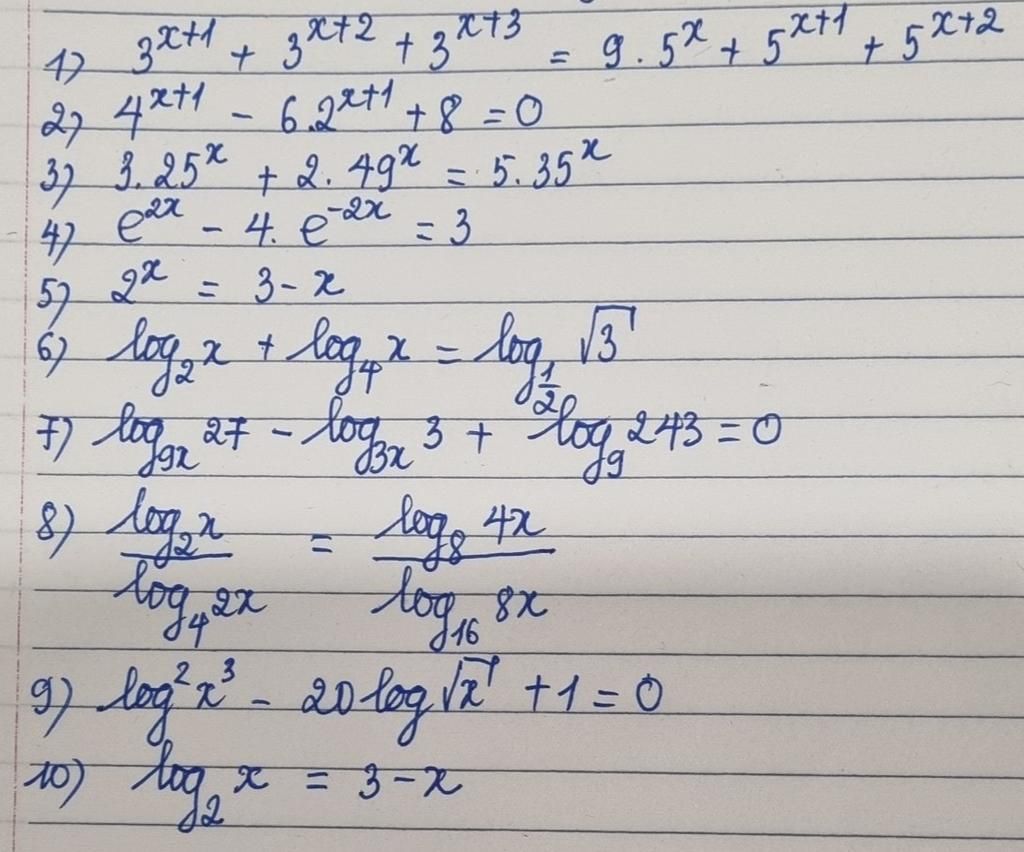 1) 3^{x+1} + 3^{x+2} + 3^{x+3} = 9 . 5^x + 5^{x+1} + 5^{x+2}
2) 4^{x+1} - 6.2^{x+1} + 8 = 0
3) 3.25^x + 2.49^x = 5.35^x
4) e^{2x} - 4. e^{-2x} = 3
5) 2^x = 3 - x
6) log_2 x + log_4 x = log_{1/2} √3
7) log_{9x} 27 - log_{3x} 3 + log_9 243 = 0
8) (log_2 x)/(log_4 2x) = (log_8 4x)/(log_{16} 8x)
9) log^2 x^3 - 20 log √x + 1 = 0
10) log_2 x = 3 - x